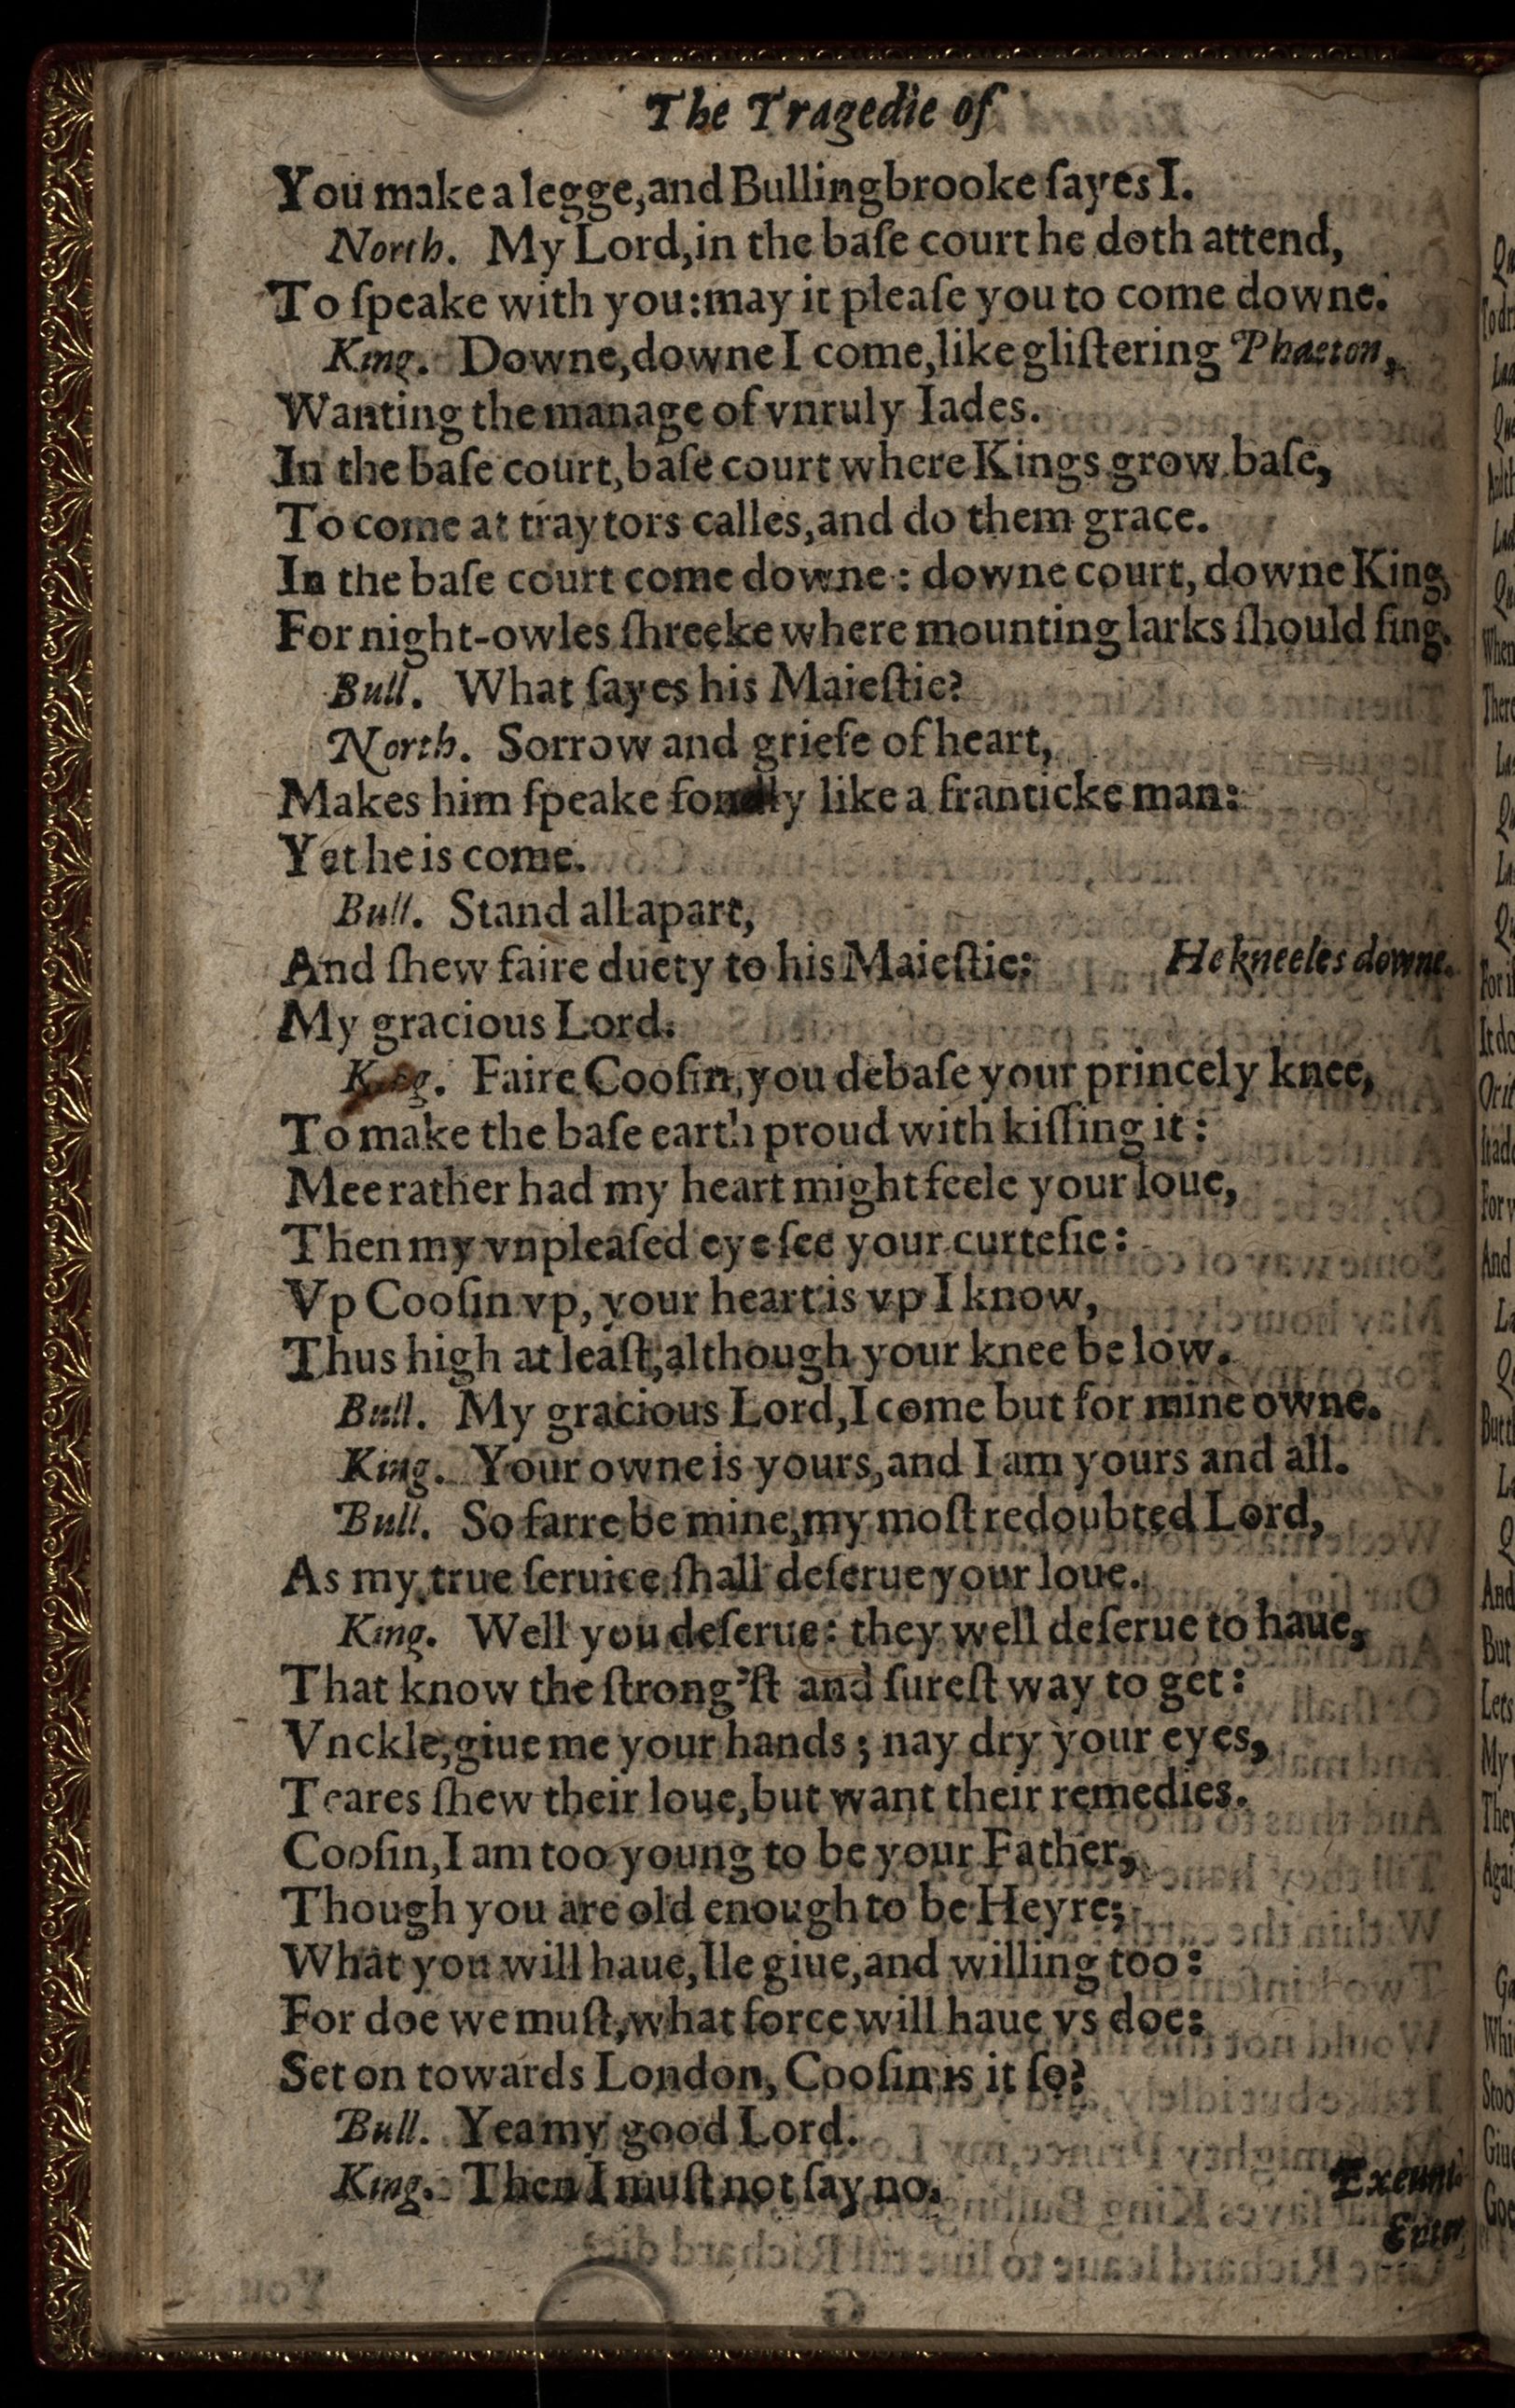 The Tragedie of
You make a legge, and Bullingbrooke ſayes I.
North. My Lord, in the baſe court he doth attend,
To ſpeake with you: may it pleaſe you to come downe.
King. Downe, downe I come, like gliſtering Phaeton,
Wanting the manage of vnruly Iades.
In the baſe court, baſe court where Kings grow baſe,
To come at traytors calles, and do them grace.
In the baſe court come downe: downe court, downe King,
For night-owles ſhreeke where mounting larks ſhould ſing.
Bull. What ſayes his Maieſtie?
North. Sorrow and griefe of heart,
Makes him ſpeake fondly like a franticke man:
Yet he is come.
Bull. Stand all apart,
And ſhew faire duety to his Maieſtie: He kneeles downe.
My gracious Lord.
King. Faire Cooſin, you debaſe your princely knee,
To make the baſe earth proud with kiſſing it:
Mee rather had my heart might feele your loue,
Then my vnpleaſed eye ſee your curteſie:
Vp Cooſin vp, your heart is vp I know,
Thus high at leaſt, although your knee be low.
Bull. My gracious Lord, I come but for mine owne.
King. Your owne is yours, and I am yours and all.
Bull. So farre be mine, my moſt redoubted Lord,
As my true ſeruice ſhall deſerue your loue.
King. Well you deſerue: they well deſerue to haue,
That know the ſtrong'ſt and ſureſt way to get:
Vnckle, giue me your hands; nay dry your eyes,
Teares ſhew their loue, but want their remedies.
Cooſin, I am too young to be your Father,
Though you are old enough to be Heyre;
What you will haue, Ile giue, and willing too:
For doe we muſt, what force will haue vs doe:
Set on towards London, Cooſin is it ſo?
Bull. Yea my good Lord.
King. Then I muſt not ſay no. Exeunt.
Enter